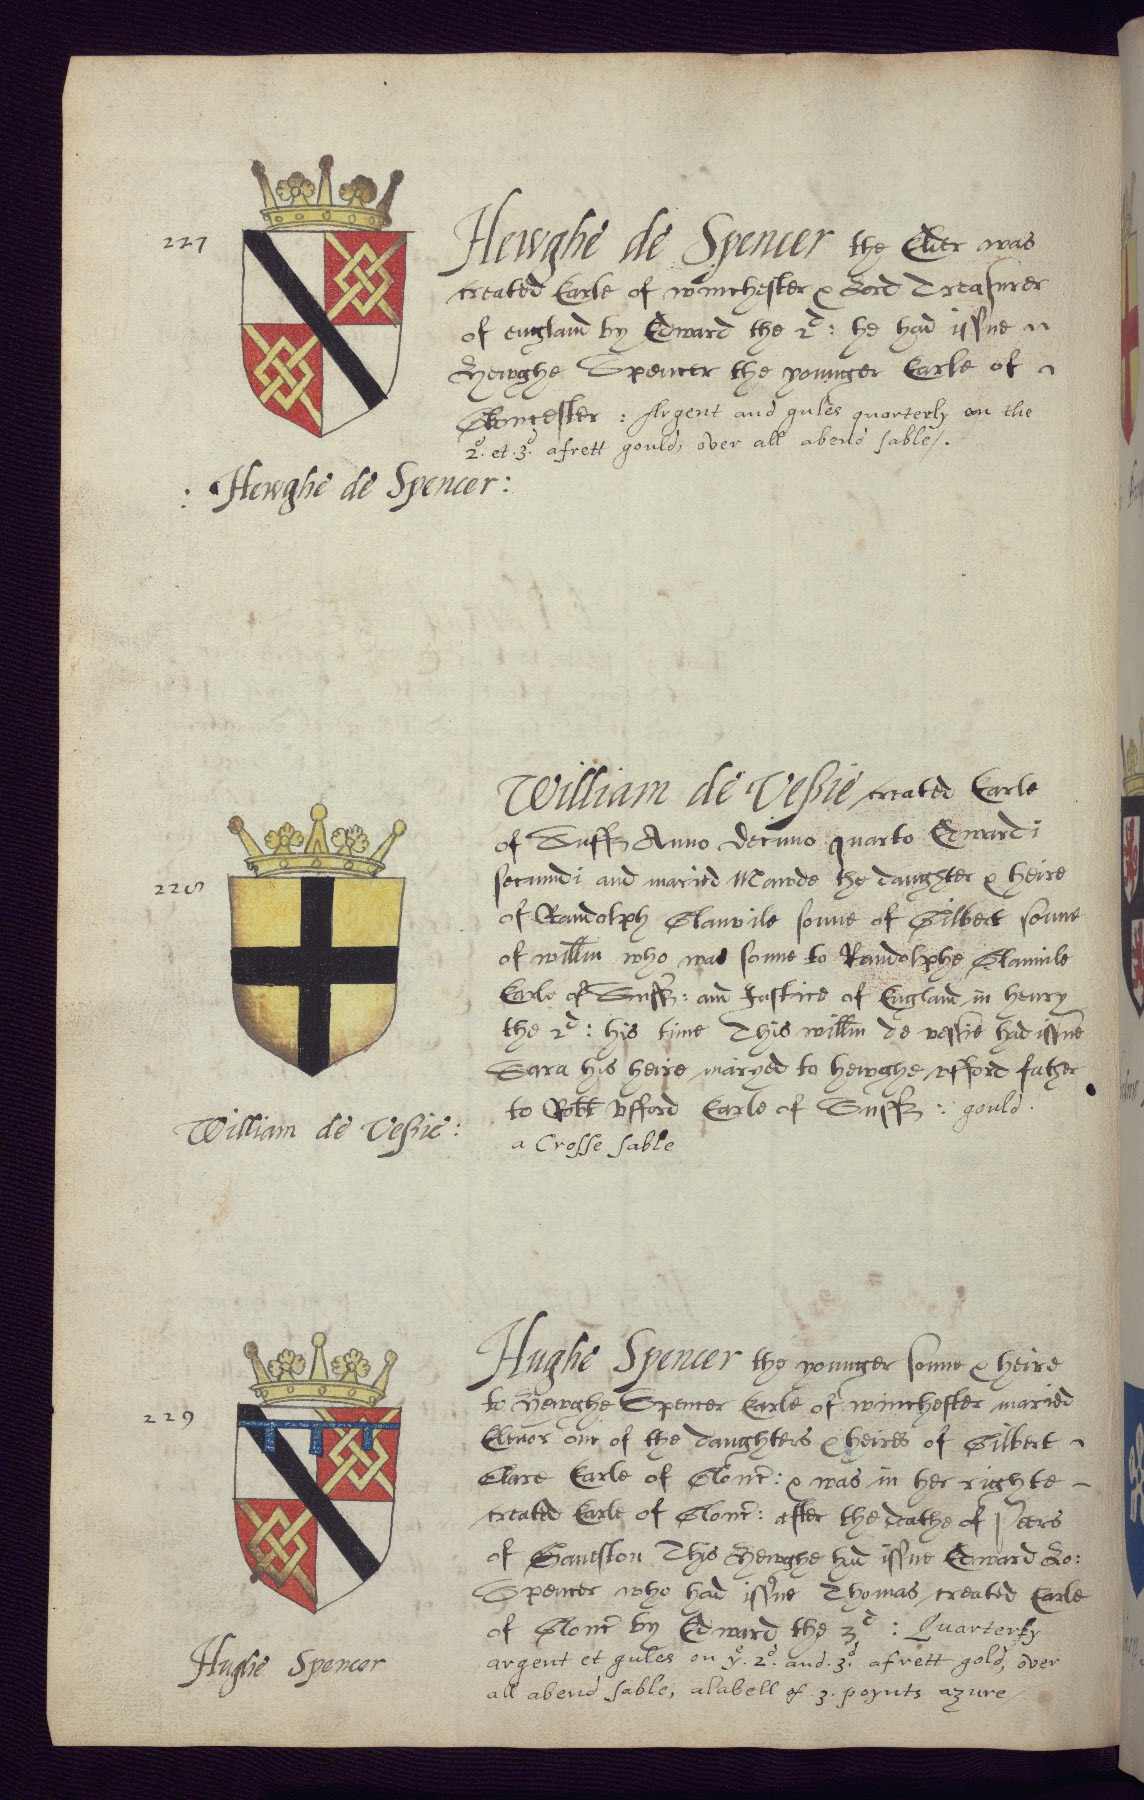 227
Hewghe de Spencer the Elder was
created Earle of winchester & Lord Treasurer
of england by Edward the 2d: he had issue
Hewghe Spencer the younger Earle of
Gloncester: Argent and gules quarterly on the
2o. et. 3d. a frett gould, over all a bend sable/.
: Hewghe de Spencer:
William de Vessie created Earle
of Suff Anno Decimo quarto Edwardi
228
secundi and maried Mawde the daughter & heire
of Randolph Glanvile sonne of Gilbert sonne
of willm who was sonne to Randolphe Glanvile
Earle of Suff: and Justice of England in henry
the 2d: his time This willm de vessie had issue
Sara his heire maryed to hewghe ufford father
to Robt Ufford Earle of Suff: gould.
a Crosse sable
William de Vessie:
Hughe Spencer the younger sonne & heire
to Hewghe Spencer Earle of winchester maried
229
Elenor one of the daughters & heires of Gilbert
Clare Earle of Glonc: & was in her righte
created Earle of Glonc: after the deathe of Peers
of Gaveston This Hewghe had issue Edward Lo:
Spencer who had issue Thomas created Earle
of Glonc by Edward the 3d: Quarterly
argent et gules on ye. 2o. and. 3d. a frett gold, over
all a bend sable, a labell of .3. poynts azure/
Hughe Spencer